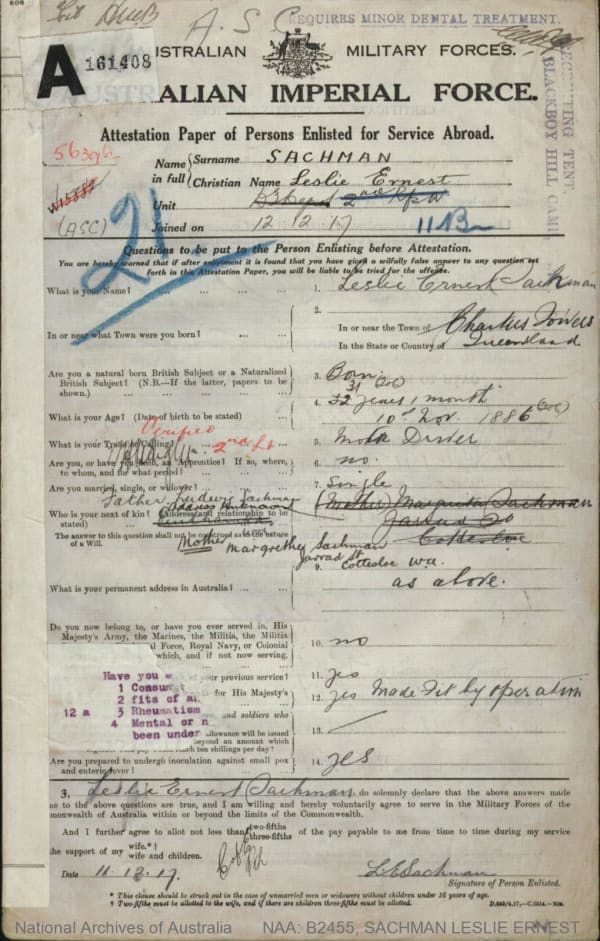 A. S. C
REQUIRES MINOR DENTAL TREATMENT.
A
161408
AUSTRALIAN MILITARY FORCES.
AUSTRALIAN IMPERIAL FORCE.
RECRUITING TENT
BLACKBOY HILL CAMP
Attestation Paper of Persons Enlisted for Service Abroad.
56396
Name in full
Surname SACHMAN
Christian Name Leslie Ernest
Unit
(ASC)
Joined on 12 12 17
21
Questions to be put to the Person Enlisting before Attestation.
You are hereby warned that if after enlistment it is found that you have given a wilfully false answer to any question set
forth in this Attestation Paper, you will be liable to be tried for the offence.
What is your Name? ... ... ... ... 1. Leslie Ernest Sachman
In or near what Town were you born? ... ... 2. In or near the Town of Charters Towers
In the State or Country of Queensland
Are you a natural born British Subject or a Naturalized
British Subject? (N.B.—If the latter, papers to be
shown.) ... ... 3. Born
What is your Age? (Date of birth to be stated) ... 4. 31 32 years 1 month
10th Nov. 1886
What is your Trade or Calling? ... 5. Motor Driver
Are you, or have you been, an Apprentice? If so, where,
to whom, and for what period? 6. no.
Are you married, single, or widower? ... 7. Single
Father Ludwig Sachman
address unknown
Who is your next of kin? (Address and relationship to be
stated)
(Mother) Sachman
Jarrad St
Cottesloe
The answer to this question shall not be construed as in the nature
of a Will.
Mother Margrethe Sachman
Jarrad St Cottesloe W.A.
What is your permanent address in Australia? ... 9. as above.
Do you now belong to, or have you ever served in, His
Majesty's Army, the Marines, the Militia, the Militia
al Force, Royal Navy, or Colonial
which, and if not now serving,
10. no
of your previous service? 11. yes
for His Majesty's 12. yes Made Fit by operation
Have you e
1 Consum
2 fits of an
12 a 3 Rheumatism
4 Mental or n
been under
and soldiers who
allowance will be issued
beyond an amount which
ten shillings per day? 13.
Are you prepared to undergo inoculation against small pox
and enteric fever? 14. yes
3. I, Leslie Ernest Sachman do solemnly declare that the above answers made
me to the above questions are true, and I am willing and hereby voluntarily agree to serve in the Military Forces of the
monwealth of Australia within or beyond the limits of the Commonwealth.
And I further agree to allot not less than two-fifths three-fifths of the pay payable to me from time to time during my service
the support of my wife.*†
wife and children.
Date 11. 12. 17.
L E Sachman
Signature of Person Enlisted.
* This clause should be struck out in the case of unmarried men or widowers without children under 16 years of age.
† Two-fifths must be allotted to the wife, and if there are children three-fifths must be allotted.
National Archives of Australia
NAA: B2455, SACHMAN LESLIE ERNEST